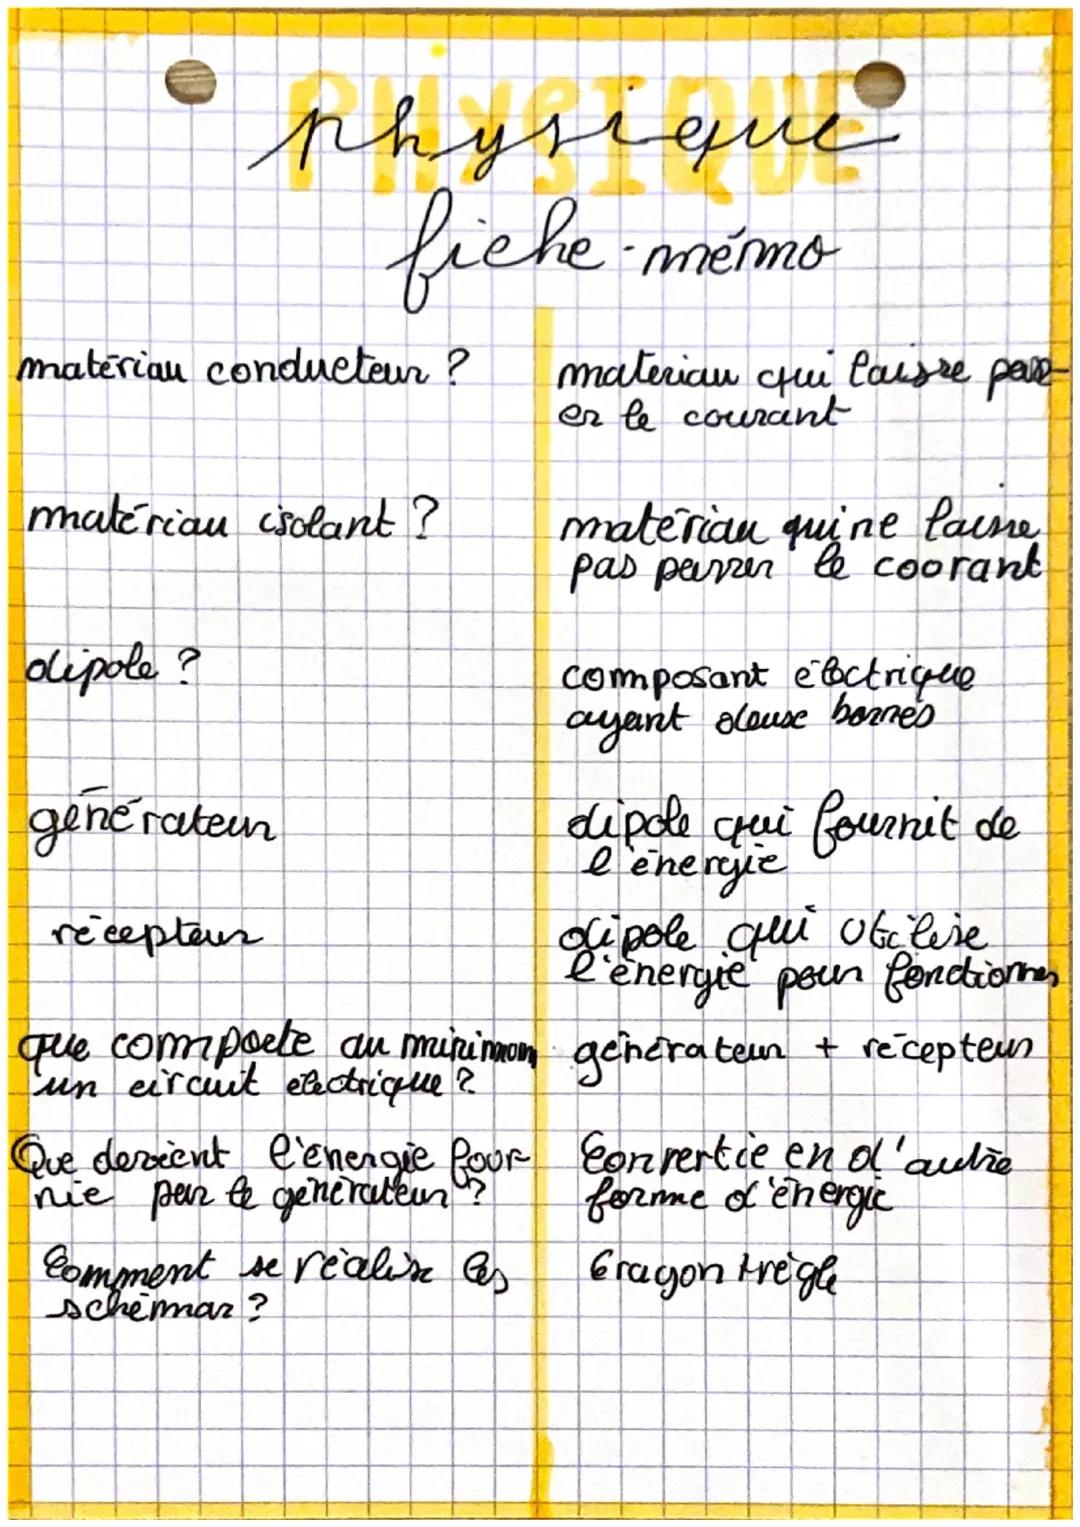 PHYSIQUE
physique
fiche-mémo
matériau conducteur ?
materiau qui laisse pass-
er le courant
matériau isolant ?
matériau qui ne laisse
pas passer le coorant
dipole ?
composant électrique
ayant deuse bornes
générateur
dipole qui fournit de
l'énergie
récepteur
dipole qui utilise
l'énergie pour fonctionner
que compoete au minimom
un circuit électrique ?
générateur + récepteur
Que devient l'énergie four-
nie par le générateur ?
Convertie en d'autre
forme d'énergie
Comment se réalise les
schémar ?
Crayon + règle